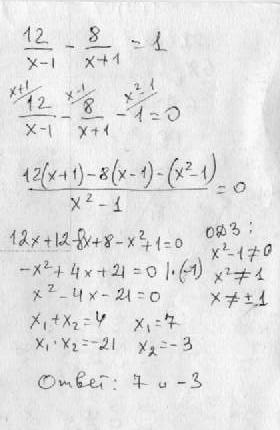 12/(x-1) - 8/(x+1) = 1
x+1/ 12/(x-1) - x-1/ 8/(x+1) - x²-1/ 1 = 0
(12(x+1)-8(x-1)-(x²-1))/(x²-1) = 0
12x+12-8x+8-x²+1=0
-x²+4x+21=0 |·(-1)
x²-4x-21=0
x₁+x₂=4 x₁=7
x₁·x₂=-21 x₂=-3
ОДЗ:
x²-1≠0
x²≠1
x≠±1
Ответ: 7 и -3